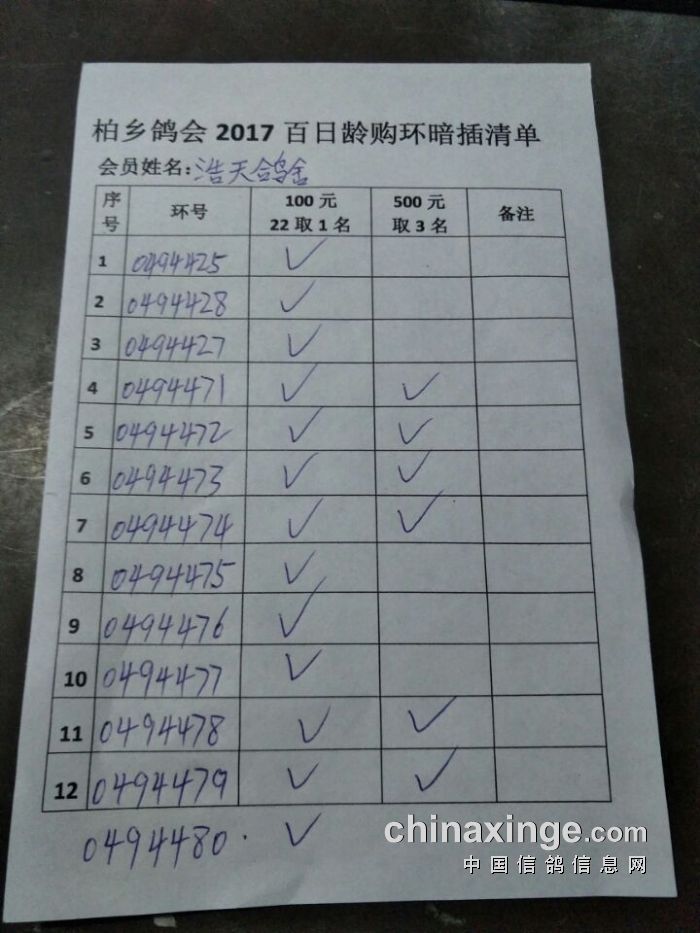 柏乡鸽会2017百日龄购环暗插清单
会员姓名:浩天鸽舍
序号 环号 100元 22取1名 500元 取3名 备注
1 0494425 ✓
2 0494428 ✓
3 0494427 ✓
4 0494471 ✓ ✓
5 0494472 ✓ ✓
6 0494473 ✓ ✓
7 0494474 ✓ ✓
8 0494475 ✓
9 0494476 ✓
10 0494477 ✓
11 0494478 ✓ ✓
12 0494479 ✓ ✓
0494480. ✓
chinaxinge.com
中国信鸽信息网